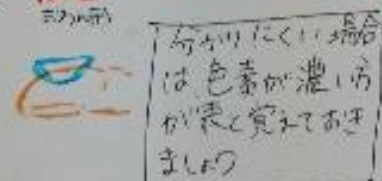 分かりにくい場合
は色素が濃い方
が表と覚えておき
ましょう